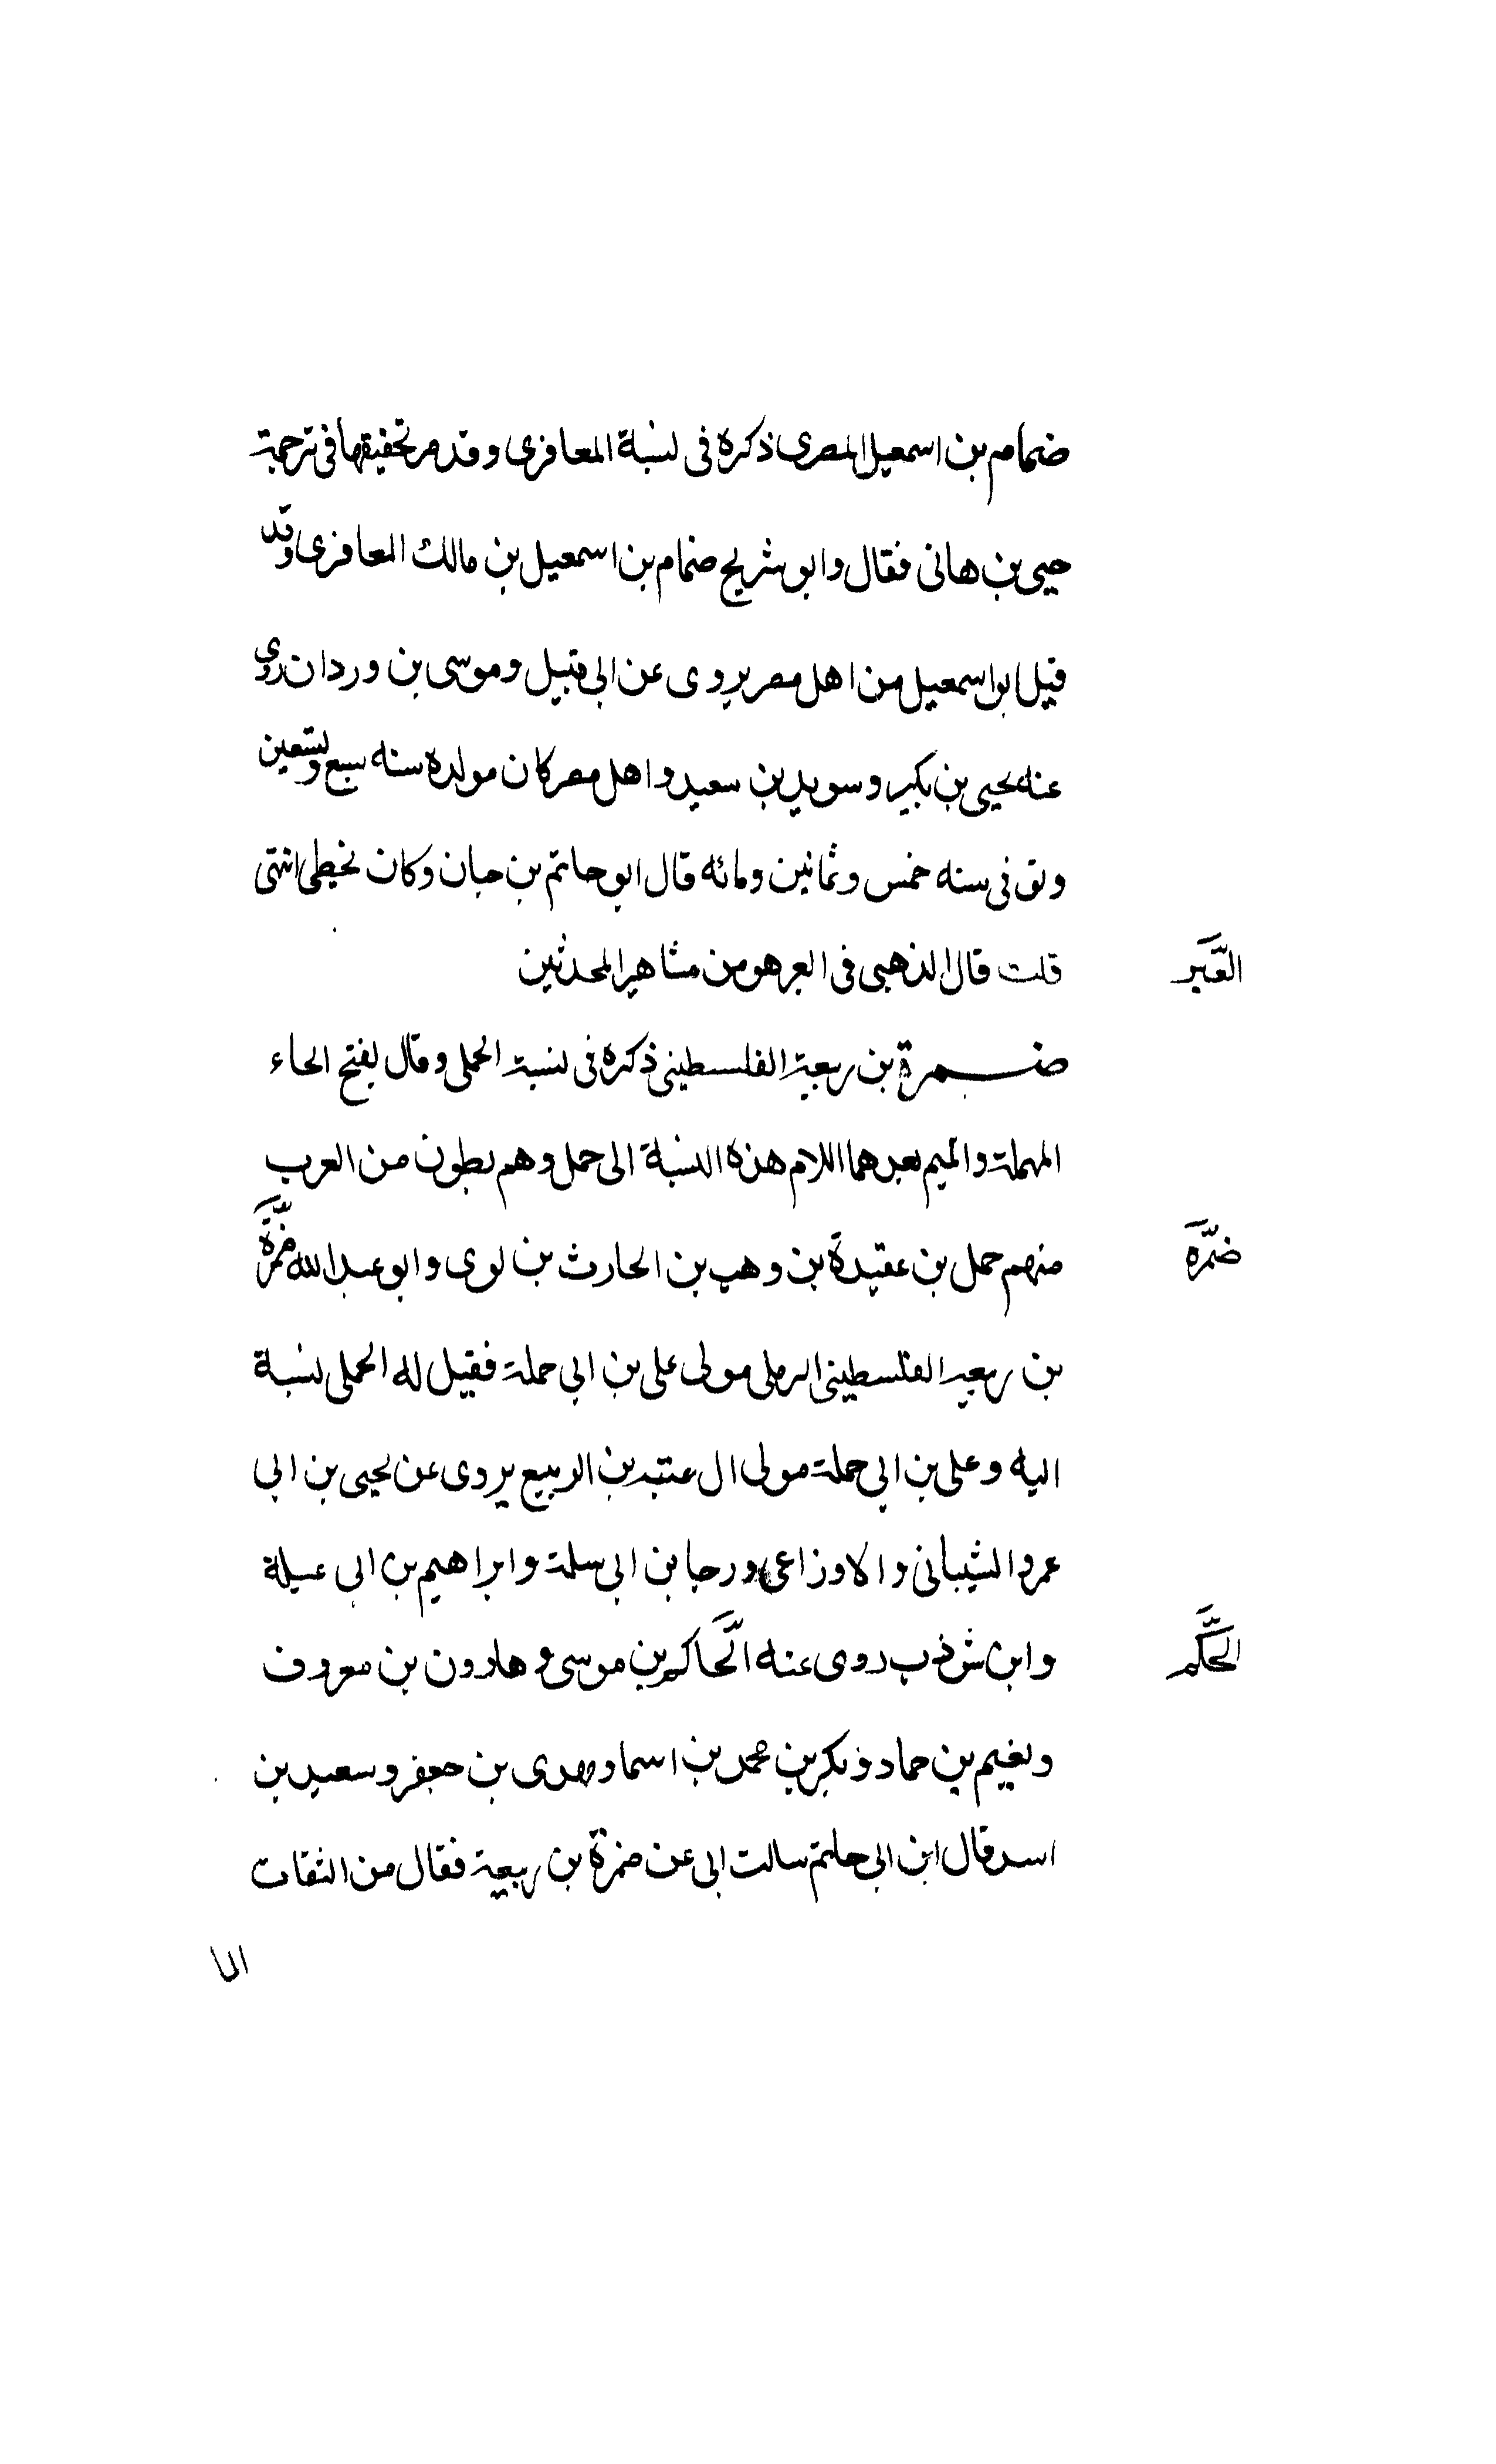 ضمام بن اسمعيل المصرى ذكره فى نسبة المعافرى وقد مر تحقيقها فى ترجمة
حيى بن هانى فقال وابو شريح ضمام بن اسمعيل بن مالك المعافرى وقد
قيل ابو اسمعيل من اهل مصر يروى عن ابى قبيل وموسى بن وردان روى
عنه يحيى بن بكير وسويد بن سعيد واهل مصر كان مولده سنه سبع وتسعين
وتوفى سنه خمس وثمانين ومائه قال ابو حاتم بن حبان وكان يخطى انتهى
قلت قال الذهبى فى العبر هو من مشاهير المحدثين
العبر
ضمرة بن ربيعة الفلسطينى ذكره فى نسبة الحملى وقال بفتح الحاء
المهملة والميم بعدهما اللام هذه النسبة الى حمل وهم بطون من العرب
منهم حمل بن عقيدة بن وهب بن الحارث بن لوى وابو عبد الله ضمرة
ضمره
بن ربيعه الفلسطينى الرملى مولى على بن ابى حملة فقيل له الحملى نسبة
اليه وعلى بن ابى حملة مولى ال عتبه بن الربيع يروى عن يحيى بن ابى
عمرو الشيبانى والاوزاعى ورجا بن ابى سلمة وابراهيم بن ابى عبلة
وابن شوذب روى عنه الحاكم بن موسى وهارون بن معروف
الحكم
ونعيم بن حماد وبكر بن محمد بن اسما ومهدى بن جعفر وسعيد بن
اسد قال ابن ابى حاتم سالت ابى عن ضمرة بن ربيعة فقال من الثقات